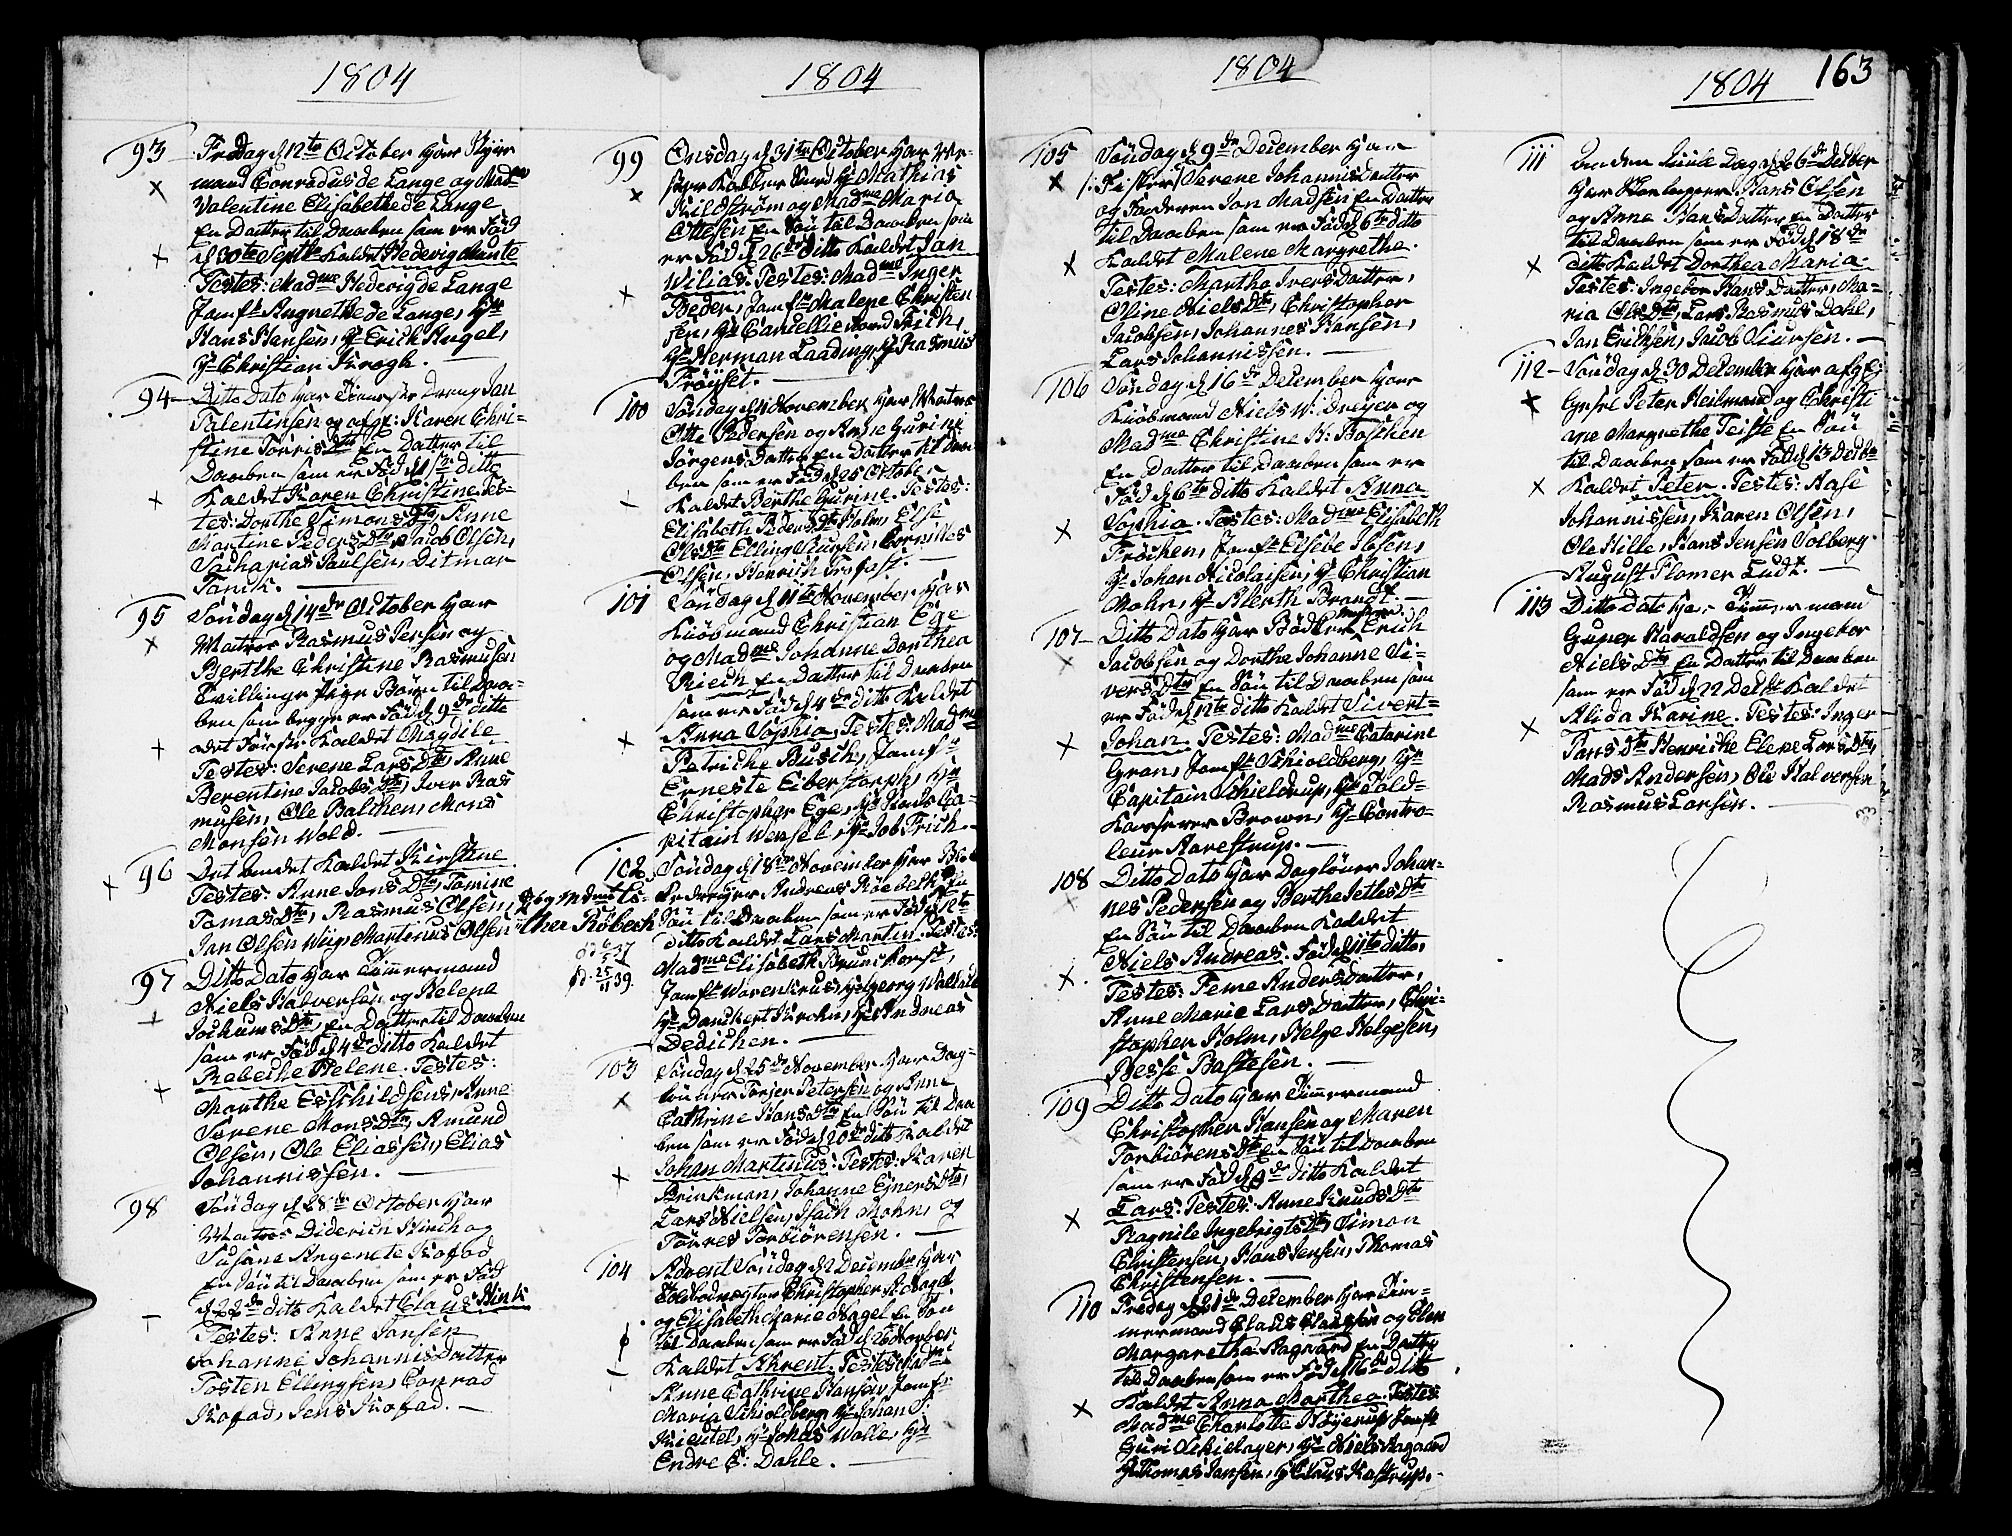 1804
93 Fredag d 12te October har Skipr
mand Conradus de Lange og Madme
Valentine Elisabeth de Lange
En Datter til Daaben som er Fød
d 30te Septbr Kaldet Hedevig Munte
Testes: Madme Hedevig de Lange
Jomfr Angnethe de Lange, Hr
Hans Hansen, Hr Erich Angel,
Hr Christian Krogh.
94 Ditto Dato har Jan
Talentinsen og Karen Chri-
stine Torris Dtr En Datter til
Daaben som er Fød d 1ste ditto
Kaldet Karen Christine. Tes-
tes: Dorthe Simons Dtr, Anne
Martine Peders Dtr, Jacob Olsen,
Zacharias Paulsen, Ditmar
Tanch.
95 Søndag d 14de October har
Matros Rasmus Persen og
Berthe Christine Rasmusen
Tvillinge Pige Børn til Daa-
ben som begge er Fød d 9de ditto
det Første Kaldet Magdile
Testes: Serene Lars Dtr, Anne
Berentine Jacobs Dtr, Iver Ras
musen, Ole Balthen, Mons
Monsen Wold.
96 Det andet Kaldet Kirstine
Testes: Anne Jons Dtr, Tomine
Tomas Dtr, Rasmus Olsen,
Jan Olsen Wiig, Martinus Olsen
97 Ditto Dato har Tømmermand
Niels Halversen og Helene
Jochums Dtr, en Datter til Daaben
som er Fød d 4de ditto Kaldet
Rebeche Helene. Testes:
Marthe Esschildsen, Anne
Serene Mons Dtr, Amund
Olsen, Ole Eliassen, Elias
Johannissen.
98 Søndag d 28de October har
Matros Diderich Hinch og
Susane Angenete Kofod
En Søn til Daaben som er Fød
d 22de ditto Kaldet Claus Hink
Testes: Anne Jansen
Johanne Johannis Datter
Tosten Ellingsen, Conrad
Kofod, Jens Kofod.
1804
99 Onsdag d 31te October har
Hr Mathias
Kildstrøm og Madme Maria
Ottesen En Søn til Daaben som
er Fød d 26de ditto Kaldet Jan
Wilias. Testes: Madme Inger
Beder, Jomfr Malene Christen
sen, Hr Cancellieraad Frich,
Hr Herman Laading, Hr Rasmus
Frøyset.
100 Søndag d 4 November har Matros
Otte Pedersen og Anne Gurine
Jørgens Datter En Datter til Daa
ben som er Fød d 25 October
Kaldet Berthe Gurine. Testes:
Elisabeth Peders Dtr Holm, Else
Ols Dtr, Elling Siursen, Cornilles
Olsen, Henrich Trofast.
101 Søndag d 11te November har
Kiøbmand Christian Ege
og Madme Johanne Dorthea
Riech En Datter til Daaben
som er Fød d 4de ditto Kaldet
Anna Sophia. Testes: Madme
Petriche Busch, Jomfr
Erneste Eiberstorph, Hr
Christopher Ege, Hr Krids Ca-
pitain Wensel, Hr Job Frich.
102 Søndag d 18de November har
Andreas Røebech En
og Mdme Es-
ther Røbech
Søn til Daaben som er Fød d 12te
ditto Kaldet Lars Martin. Testes:
Madme Elisabeth Brunshorst,
Jomfr Maren Krus, Hr Georg
Hr Danchert Krohn, Hr Andreas
Dedichen.
103 Søndag d 25de November har Dag-
lønner Torger Petersen og Anne
Cathrine Hans Dtr En Søn til Daa
ben som er Fød d 20de ditto Kaldet
Johan Martinus. Testes: Karen
Brinkman, Johanne Ejners Dtr,
Lars Nielsen, Isach Mohn, og
Torres Torbiørensen.
104 Advent Søndag d 2 December har
Christopher A: Nagel
og Elisabeth Marie Nagel En Søn
til Daaben som er Fød d 26 Novber
Kaldet Ahrent. Testes: Madme
Anne Cathrine Hansen, Jomfr
Maria Schioldberg, Hr Johan J:
Krieutel, Hr Johas Wolle, Hr
Endre E: Dahle.
1804
105 Søndag d 9de December har
Serene Johannis datter
og Faderen Jan Madsen En Datter
til Daaben som er Fød d 6te ditto
Kaldet Malene Margrethe.
Testes: Martha Ivers Datter,
Oline Niels Dtr, Christopher
Jacobsen, Johannes Hansen,
Lars Johannissen.
106 Søndag d 16de December har
Kiøbmand Niels W: Dreyer og
Madme Christine H: Boschen
En Datter til Daaben som er
Fød d 6te ditto Kaldet Anna
Sophia. Testes: Madme Elisabeth
Frøchen, Jomfr Elsebe Ibsen,
Hr Johan Nicolaisen, Hr Christian
Mohn, Hr Alerth Brandt.
107 Ditto Dato har Bødker Erich
Jacobsen og Dorthe Johanne Si-
vers Dtr En Søn til Daaben som
er Fød d 12te ditto Kaldet Sivert
Johan. Testes: Madme Catarine
Gran, Jomfr Schioldberg, Hr
Capitain Schieldrup, Hr Told-
Kasserer Brown, Hr Contro-
leur Aarestrup.
108 Ditto Dato har Dagløner Johan-
nes Pedersen og Berthe Jetles Dtr
En Søn til Daaben Kaldet
Niels Andreas. Fød d 11te ditto,
Testes: Feme Anders Datter,
Anne Marie Lars Datter, Chri-
stopher Holm, Helge Helgesen,
Besse Bastesen.
109 Ditto Dato har Tømmermand
Christopher Hansen og Maren
Torbiørens Dtr En Søn til Daaben
som er Fød d 9de ditto Kaldet
Lars. Testes: Anne Knuds Dtr
Ragnile Ingebrigts Dtr Simon
Christensen, Hans Jensen, Thomas
Christensen.
110 Fredag d 21de December har Tøm-
mermand Claus Clausen og Elen
Margaretha Aagaard En Datter
til Daaben som er Fød d 16de ditto
Kaldet Anna Marthea. Testes:
Madme Charlotte Høyerup, Jomfr
Guri Schielager, Hr Niels Aagaard
Hr Thomas Jansen, Hr Claus Kastrup.
1804 163
111 Anden Juule Dag d 26de Decber
har Hans Olsen
og Anne Hans Datter En Datter
til Daaben som er Fød d 18de
ditto Kaldet Dorthea Maria.
Testes: Ingebor Hans Datter, Ma-
ria Ols Dtr, Lars Rasmus Dahl,
Jan Erichsen, Jacob Siursen.
112 Søndag d 30 December har
Peter Heilmand og Christi
ane Margrethe Teiste En Søn
til Daaben som er Fød d 13 Decbr
Kaldet Peter. Testes: Aase
Johannissen, Karen Olsen,
Ole Hille, Hans Jensen Solberg
August Flomer Ludt.
113 Ditto Dato har Tømmermand
Guner Haraldsen og Ingebor
Niels Dtr En Datter til Daaben
som er Fød d 22 Decbr Kaldet
Alida Karine. Testes: Inger
Pars Dtr Henriche Elene Lars Dtr,
Mads Andersen, Ole Halversen
Rasmus Larsen.